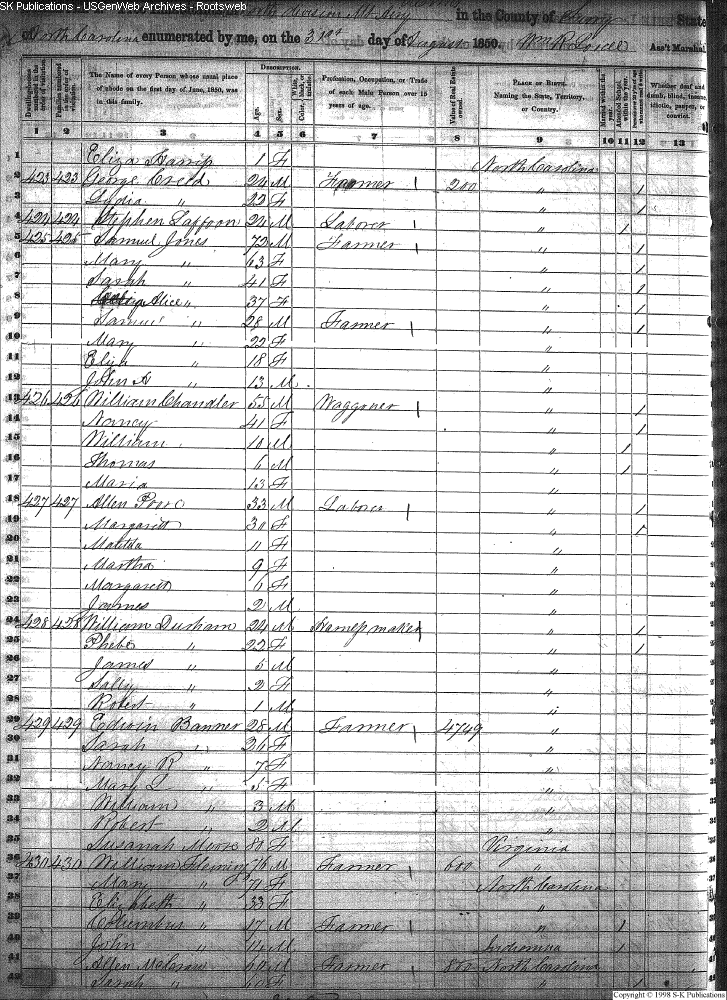 SK Publications - USGenWeb Archives - Rootsweb
division Mt Airy in the County of Surry State
of North Carolina enumerated by me, on the 31st day of August 1850. Ass't Marshal
DESCRIPTION.
The Name of every Person whose usual place of abode on the first day of June, 1850, was in this family.
Age. Sex.
Profession, Occupation, or Trade of each Male Person over 15 years of age.
Value of Real Estate owned.
PLACE OF BIRTH. Naming the State, Territory, or Country.
Whether deaf and dumb, blind, insane, idiotic, pauper, or convict.
1 2 3 4 5 6 7 8 9 10 11 12 13
1 Eliza 1 F North Carolina
2 423 423 George Creed 24 M Farmer 1 200 " 1
3 Lydia " 22 F " 1
4 424 424 Stephen Laffoon 24 M Laborer 1 " 1
5 425 425 Samuel Jones 72 M Farmer 1 " 1
6 Mary " 63 F " 1
7 Sarah " 41 F " 1
8 Alice " 37 F " 1
9 Samuel " 28 M Farmer 1 " 1
10 Mary " 22 F "
11 Eliza " 18 F "
12 John A " 13 M "
13 426 426 William Chandler 55 M Waggoner 1 " 1
14 Nancy 41 F " 1
15 William " 10 M " 1
16 Thomas 6 M " 1
17 Maria 13 F "
18 427 427 Allen 33 M Laborer 1 " 1
19 Margarett 30 F " 1
20 Malitha 11 F "
21 Martha 9 F "
22 Margarett 6 F "
23 James 2 M "
24 428 428 William Durham 24 M Harness maker 1 " 1
25 Phebe " 22 F " 1
26 James " 5 M "
27 Sally " 2 F "
28 Robert " 1 M "
29 429 429 Edwin Banner 28 M Farmer 1 4749 "
30 Sarah " 26 F "
31 Nancy R " 7 F "
32 Mary L " 5 F "
33 William " 3 M "
34 Robert " 2 M "
35 Susanah Moore 80 F Virginia
36 430 430 William Fleming 76 M Farmer 1 600 "
37 Mary " 71 F North Carolina
38 Elizabeth " 33 F "
39 Columbus " 17 M Farmer 1 " 1
40 John " 14 M 1
41 Allen 60 M Farmer 1 800 North Carolina
42 Sarah " 60 F " 1
Copyright © 1998 S-K Publications